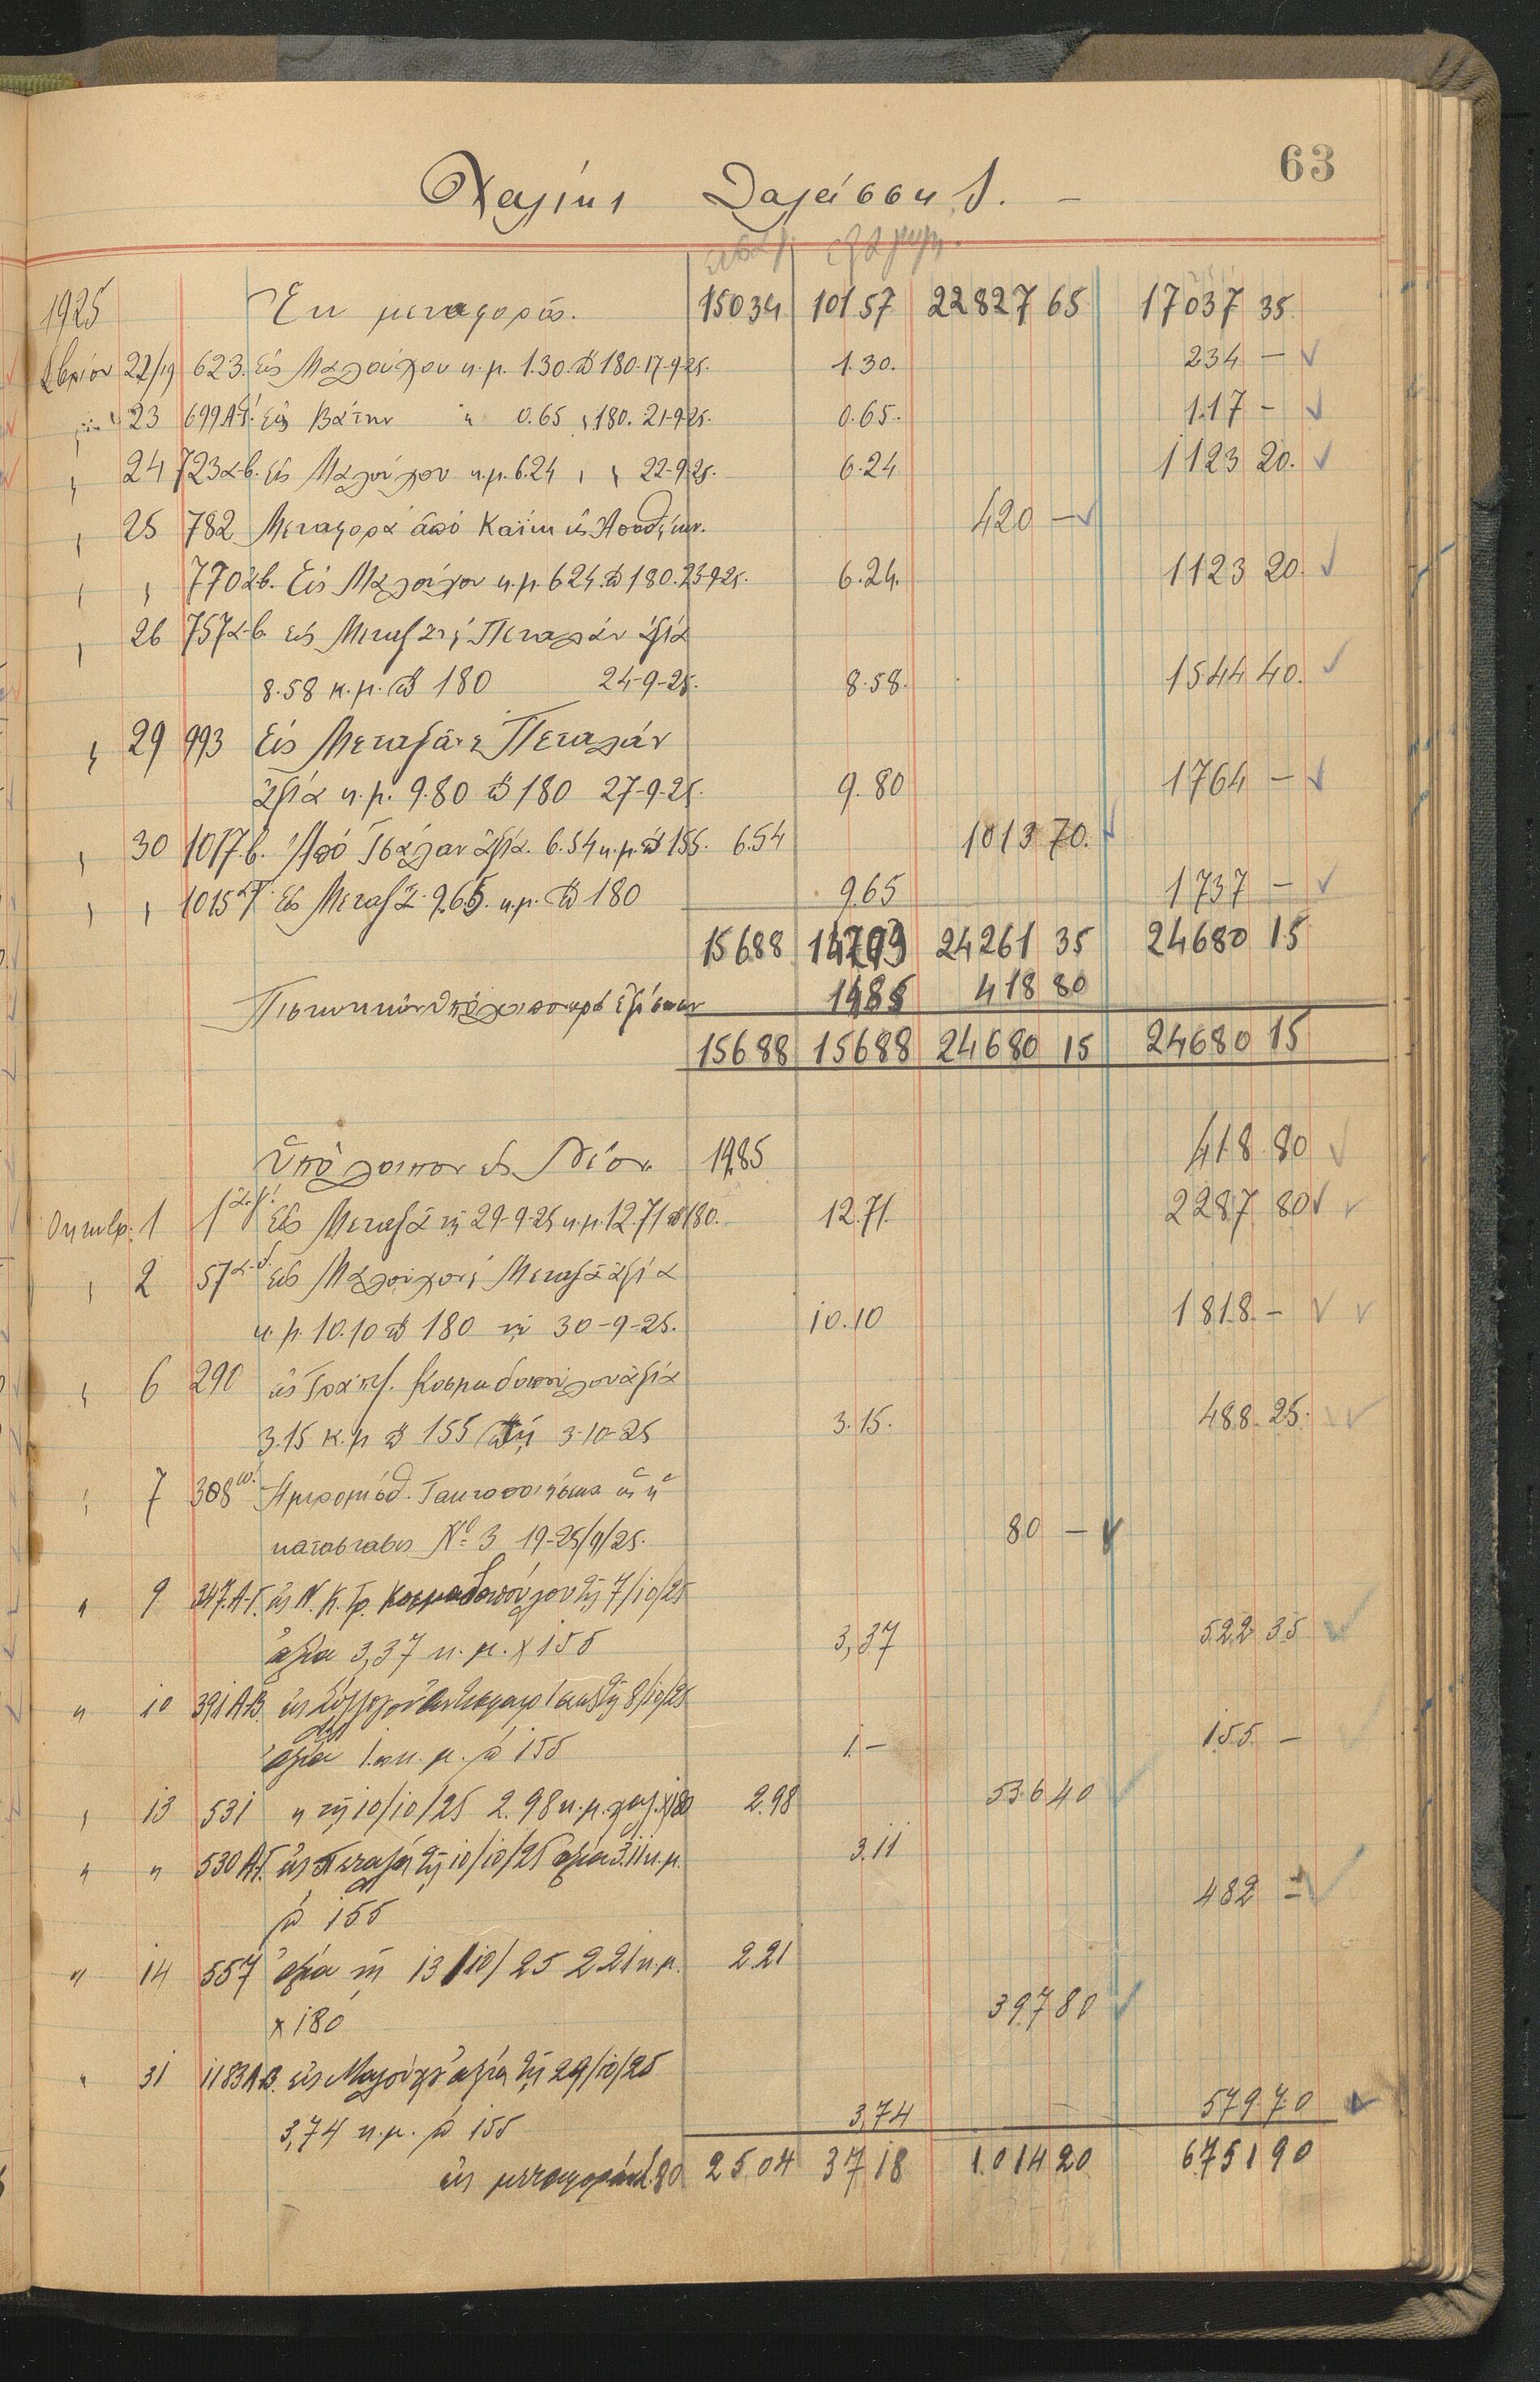 63
Χαλίκι Θαλάσσης. –
1925 Ἐκ μεταφορᾶς. 15034 10157 22827 65 17037 35
22/19 623. Εἰς Μαλούχου κ.μ. 1.30. 180. 17-9-25. 1.30. 234 –
" 23 699 Α-Γ. Εἰς Βάτην " 0.65 " 180. 21-9-25. 0.65. 117 –
" 24 723 α-β. Εἰς Μαλούχου κ.μ. 6.24 " " 22-9-25. 6.24 1123 20.
" 25 782 Μεταφορά ἀπό Καΐκι εἰς Ἀποθήκην. 420 –
" " 770 α-β. Εἰς Μαλούχου κ.μ. 6.24. 180. 23-9-25. 6.24. 1123 20.
" 26 757 α-β. εἰς Μεταξᾶ Πεταλάν ἀξία
8.58 κ.μ. 180 24-9-25. 8.58. 1544 40.
" 29 993 Εἰς Μεταξᾶν Πεταλάν
ἀξία κ.μ. 9.80 180 27-9-25. 9.80 1764 –
" 30 1017.β. Ἀπό ἀξία. 6.54 κ.μ. 155. 6.54 1013 70.
" " 1015 Εἰς Μεταξᾶ 9.65. κ.μ. 180 9.65 1737 –
15688 24261 35 24680 15
418 80
15688 15688 24680 15 24680 15
Ὑπόλοιπον εἰς Νέον 1985 418 80
Ὀκτωβρ. 1 1 α-γ. Εἰς Μεταξᾶ τῇ 29-9-25 κ.μ. 12.71 180. 12.71. 2287 80
" 2 57 α-δ. Εἰς Μαλούχου Μεταξᾶ ἀξία
κ.μ. 10.10 180 τῇ 30-9-25. 10.10 1818. –
" 6 290 εἰς Τράπεζ. Κοσμαδοπούλου ἀξία
3.15 κ.μ 155 τῇ 3-10-25 3.15. 488 25.
" 7 308 Ἡμερομίσθ. Τακτοποιήσεως ὡς ἡ
κατάστασις Νο 3 19-25/9/25. 80 –
" 9 347.Α-Γ. εἰς Ν. Κ. Τρ. Κοσμαδοπούλου τῇ 7/10/25
ἀξία 3,37 κ.μ. x 155 3,37 522 35
" 10 391 Α-Β. εἰς τῇ 8/10/25
ἀξία 1. κ.μ. 155 1. – 155 –
" 13 531 " τῇ 10/10/25 2.98 κ.μ. χαλ. x 180 2.98 536 40
" " 530 Α-Γ. εἰς Μεταξᾶ τῇ 10/10/25 ἀξία 3.11 κ.μ.
155 3.11 482 –
" 14 557 ἀξία τῇ 13/10/25 2.21 κ.μ. 2.21
x 180 397 80
" 31 1183 Α-Β. εἰς Μαλούχο ἀξία τῇ 29/10/25
3,74 κ.μ. 155 3,74 579 70
εἰς μεταφοράν 2504 3718 1014 20 6751 90